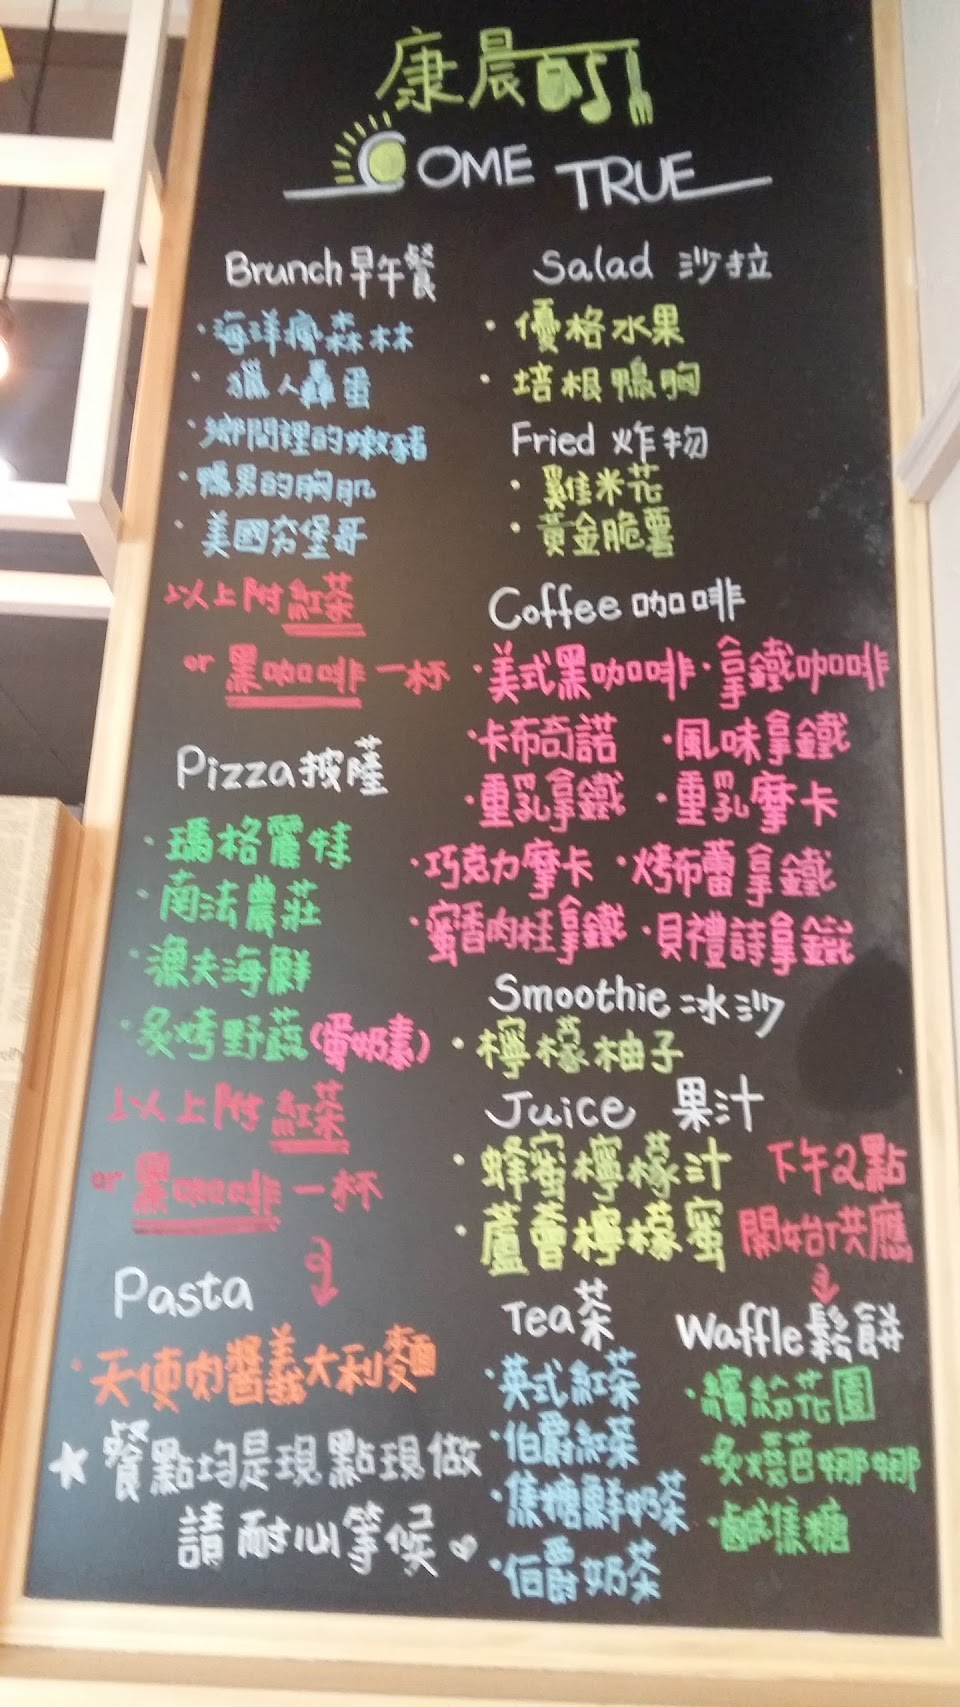 康晨
COME TRUE
Brunch 早午餐
·海洋瘋森林
·獵人轟蛋
·鄉間裡的嫩豬
·鴨男的胸肌
·美國夯堡哥
以上附紅茶
or 黑咖啡一杯
Pizza 披薩
·瑪格麗特
·南法農莊
·漁夫海鮮
·炙烤野蔬(蛋奶素)
以上附紅茶
or 黑咖啡一杯
Pasta
·天使肉醬義大利麵
Salad 沙拉
·優格水果
·培根鴨胸
Fried 炸物
·雞米花
·黃金脆薯
Coffee 咖啡
·美式黑咖啡 ·拿鐵咖啡
·卡布奇諾 ·風味拿鐵
·重乳拿鐵 ·重乳摩卡
·巧克力摩卡 ·烤布蕾拿鐵
·蜜香肉桂拿鐵 ·貝禮詩拿鐵
Smoothie 冰沙
·檸檬柚子
Juice 果汁
·蜂蜜檸檬汁
·蘆薈檸檬蜜
Tea 茶
·英式紅茶
·伯爵紅茶
·焦糖鮮奶茶
·伯爵奶茶
下午2點
開始供應
Waffle 鬆餅
·繽紛花園
·炙燒芭娜娜
·鹹焦糖
★餐點均是現點現做
請耐心等候♥